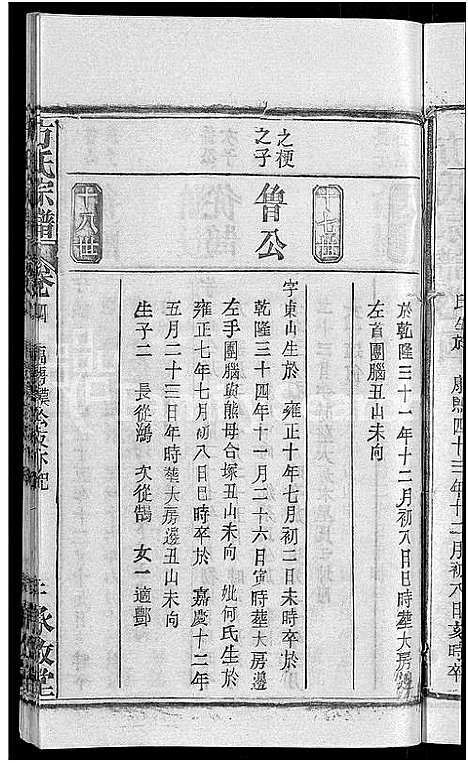 氏生於 康熙四十三年十二月初八日亥時卒
於乾隆三十一年十二月初八日巳時葬大房邊
左首團腦丑山未向
十七世
之梗之子
魯公
字東山生於 雍正十年七月初二日未時卒於
乾隆三十四年十一月二十六日寅時葬大房邊
左手團腦與熊母合塚丑山未向 妣何氏生於
雍正七年七月初八日巳時卒於 嘉慶十二年
五月二十三日午時葬大房邊丑山未向
生子二 長從鵷 次從鵠 女一適鄧
十八世
方氏宗譜
卷四
敬堂